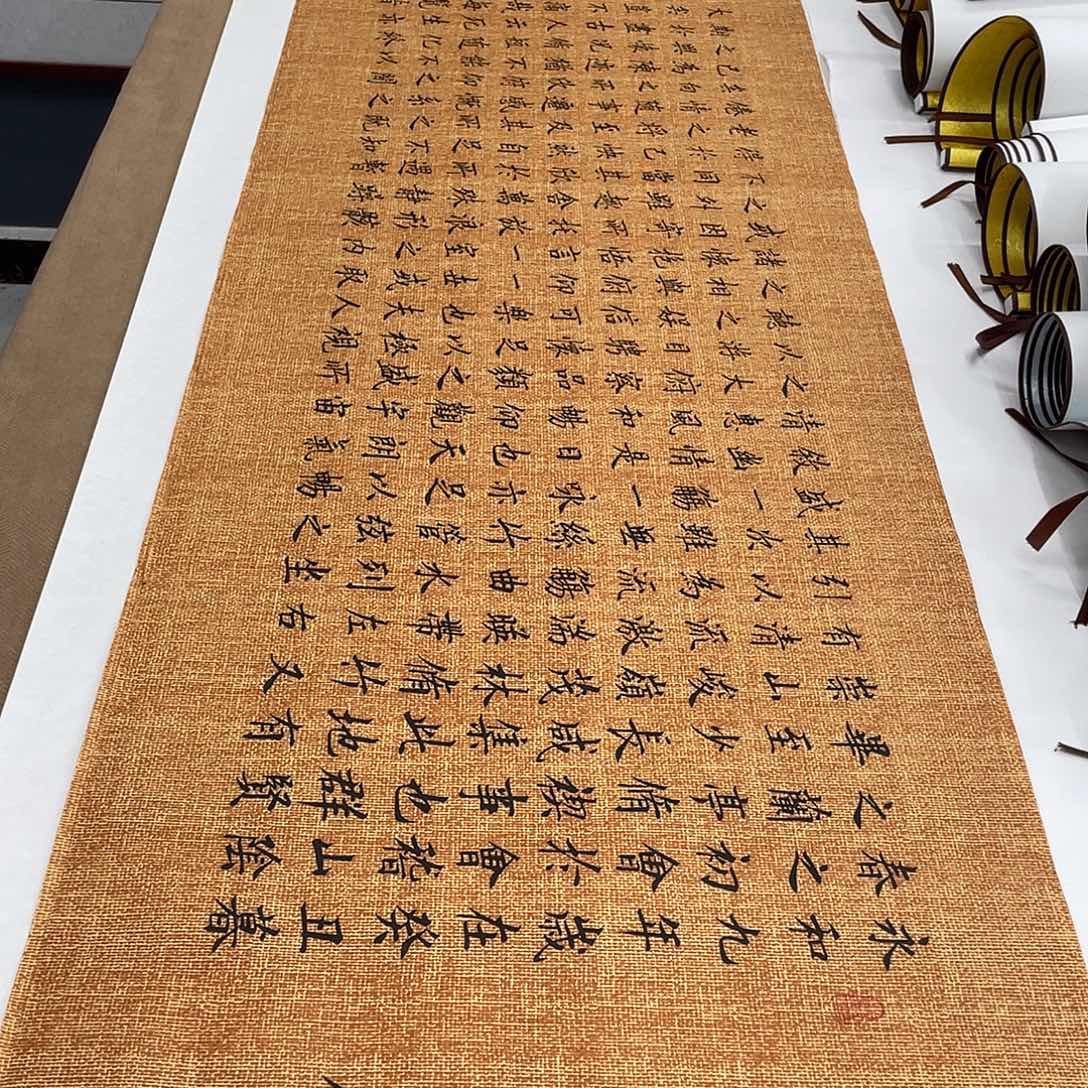 永和九年歲在癸丑暮
春之初會於會稽山陰
之蘭亭脩禊事也群賢
畢至少長咸集此地有
崇山峻嶺茂林脩竹又
有清流激湍暎帶左右
引以為流觴曲水列坐
其次雖無絲竹管弦之
盛一觴一詠亦足以暢
敘幽情是日也天朗氣
清惠風和暢仰觀宇宙
之大俯察品類之盛所
以遊目騁懷足以極視
聽之娛信可樂也夫人
之相與俯仰一世或取
諸懷抱悟言一室之內
或因寄所託放浪形骸
之外雖趣舍萬殊靜躁
不同當其欣於所遇暫
得於己快然自足不知
老之將至及其所之既
倦情隨事遷感慨係之
矣向之所欣俛仰之間
已為陳迹猶不能不以
之興懷況脩短隨化終
期於盡古人云死生亦